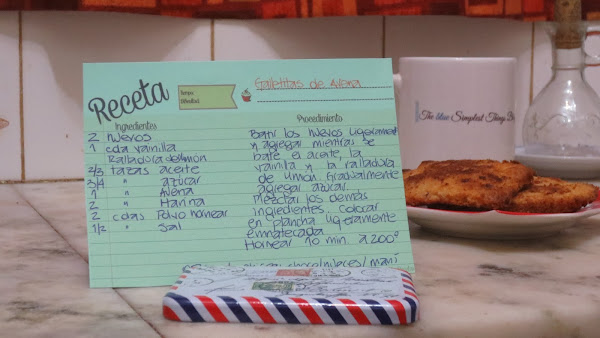 Receta
Tiempo:
Dificultad:
Galletitas de Avena
Ingredientes
2 huevos
1 cda vainilla
Ralladura de limon
2/3 tazas aceite
3/4 " azucar
1 " Avena
2 " Harina
2 cdas Polvo hornear
1/2 " Sal
Procedimiento
Batir los huevos ligeramente
y agregar mientras se
bate el aceite, la
vainilla y la ralladura
de limon. Gradualmente
agregar azucar.
Mezclar los demás
ingredientes. Colocar
en plancha ligeramente
enmantecada.
Hornear 10 min. a 200°
choco/nueces/maní
The blue Simplest Things